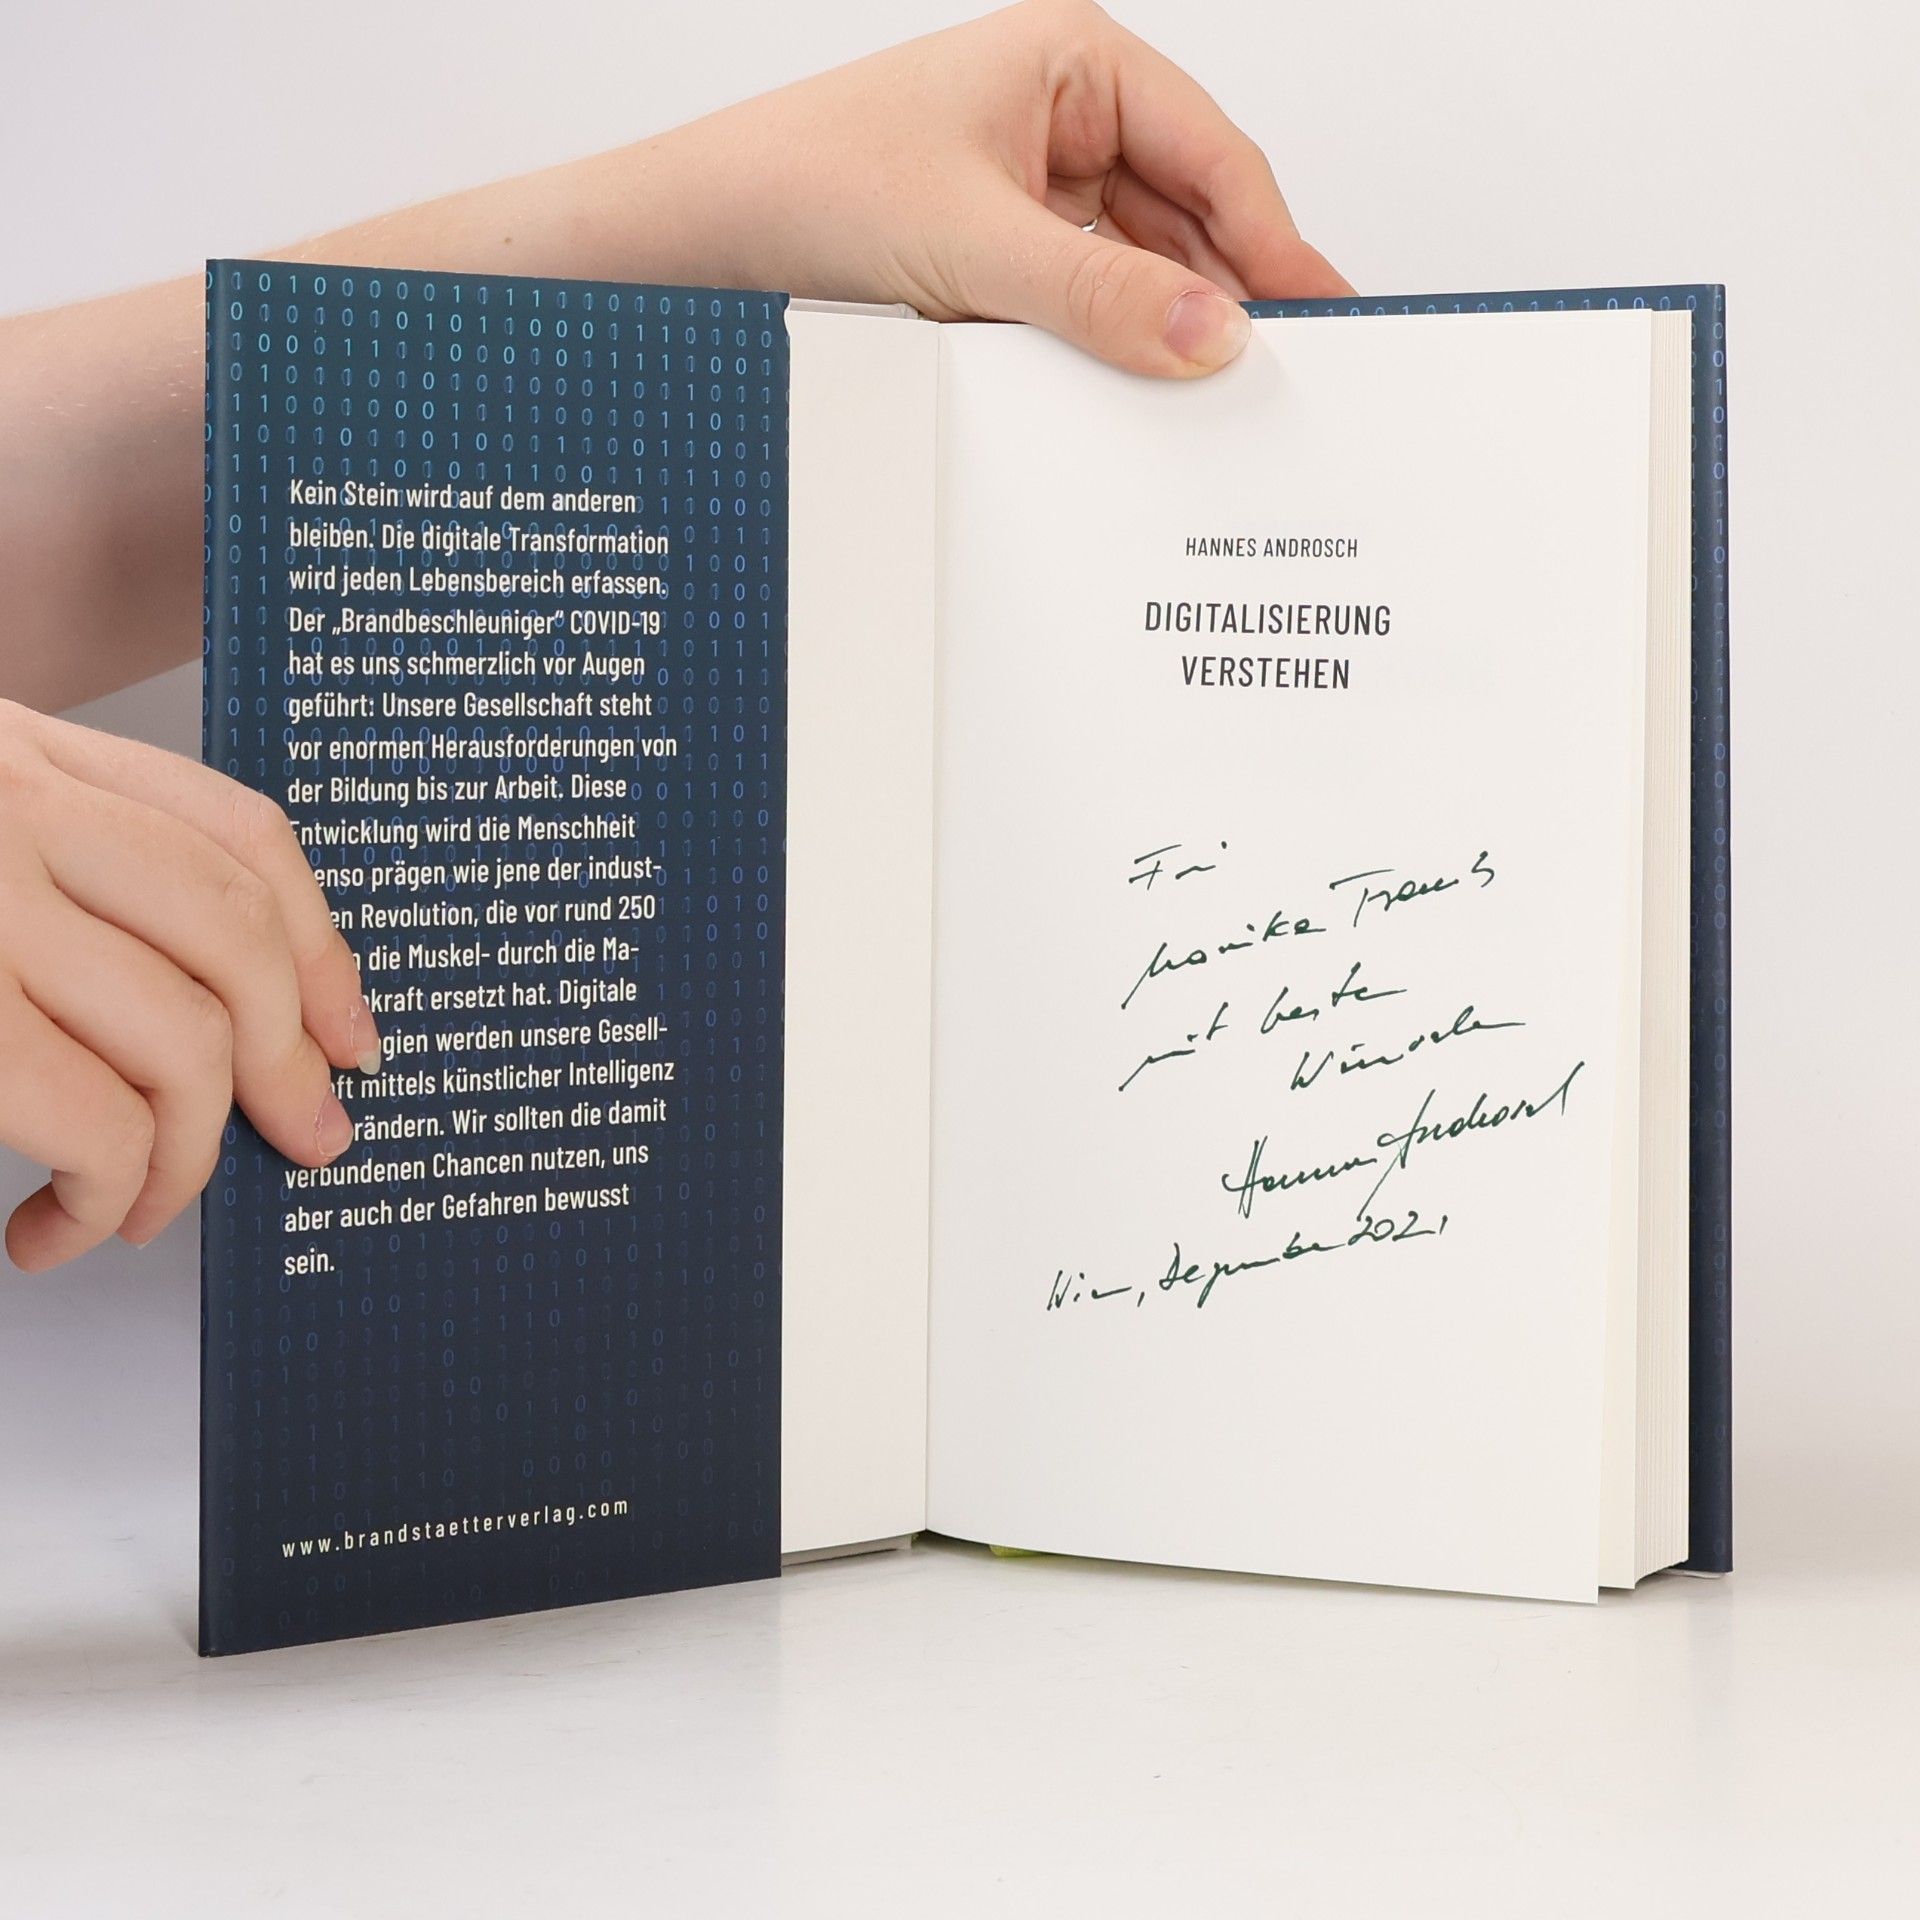 Kein Stein wird auf dem anderen
bleiben. Die digitale Transformation
wird jeden Lebensbereich erfassen.
Der „Brandbeschleuniger“ COVID-19
hat es uns schmerzlich vor Augen
geführt: Unsere Gesellschaft steht
vor enormen Herausforderungen von
der Bildung bis zur Arbeit. Diese
Entwicklung wird die Menschheit
prägen wie jene der indust-
Revolution, die vor rund 250
die Muskel- durch die Ma-
kraft ersetzt hat. Digitale
werden unsere Gesell-
mittels künstlicher Intelligenz
rändern. Wir sollten die damit
verbundenen Chancen nutzen, uns
aber auch der Gefahren bewusst
sein.
www.brandstaetterverlag.com
HANNES ANDROSCH
DIGITALISIERUNG
VERSTEHEN
Für
Monika
mit besten
Wünschen
Hannes Androsch
Wien, Dezember 2021